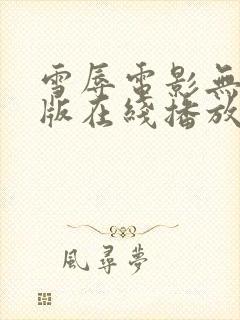 雪辱電影無
版在綫播放
風尋夢